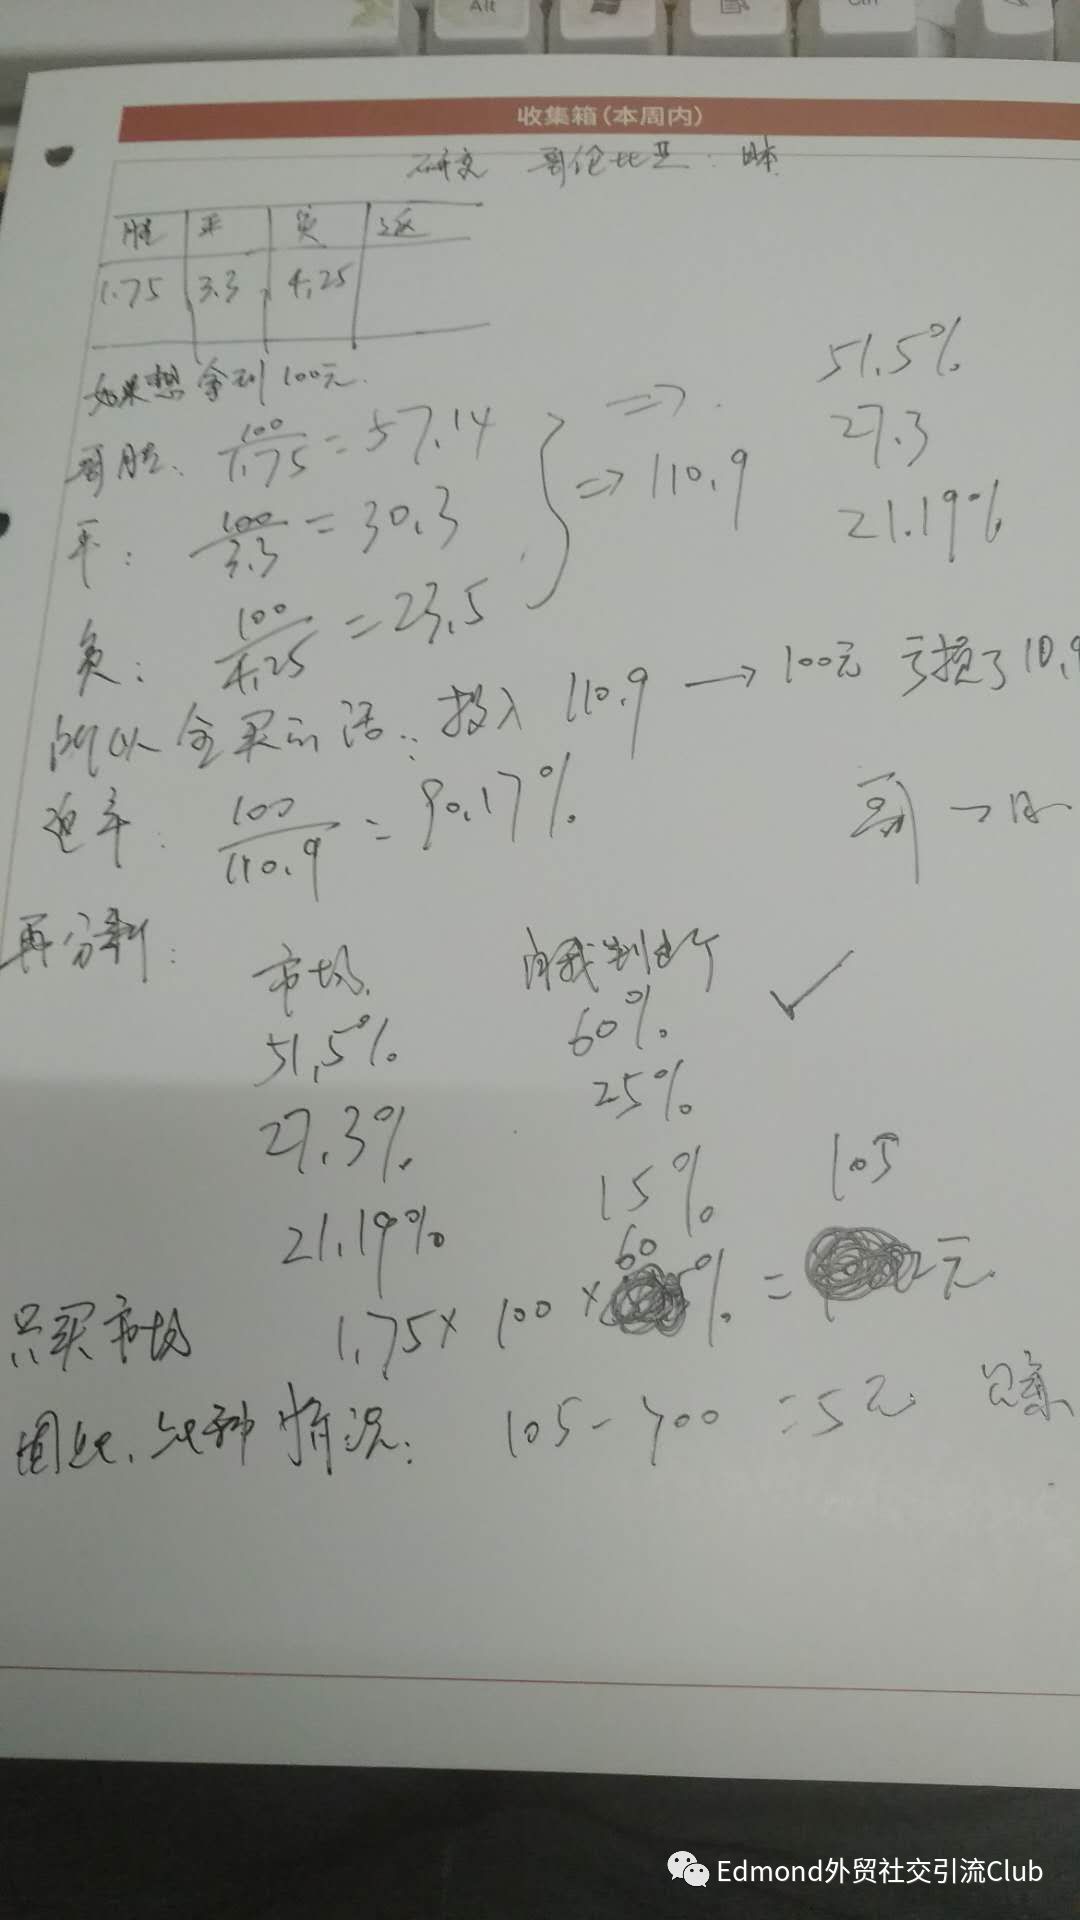 Alt
Ctrl
收集箱(本周内)
研究 哥伦比亚:日本
胜 平 负 返
1.75 3.3 4.25
如果想拿到100元.
51.5%
27.3
21.19%
哥胜: 100/1.75=57.14 ⇒
平: 100/3.3=30.3 ⇒110.9
负: 100/4.25=23.5
所以全买的话: 投入 110.9 → 100元 亏损了10.9
返率: 100/110.9=90.17%
哥 → 日
再分割:
市场 自我判断
51.5% 60% ✓
27.3% 25%
21.19% 15% 105
只买市场 1.75×100×60%= 元
因此,此种情况: 105-100=5元
Edmond外贸社交引流Club